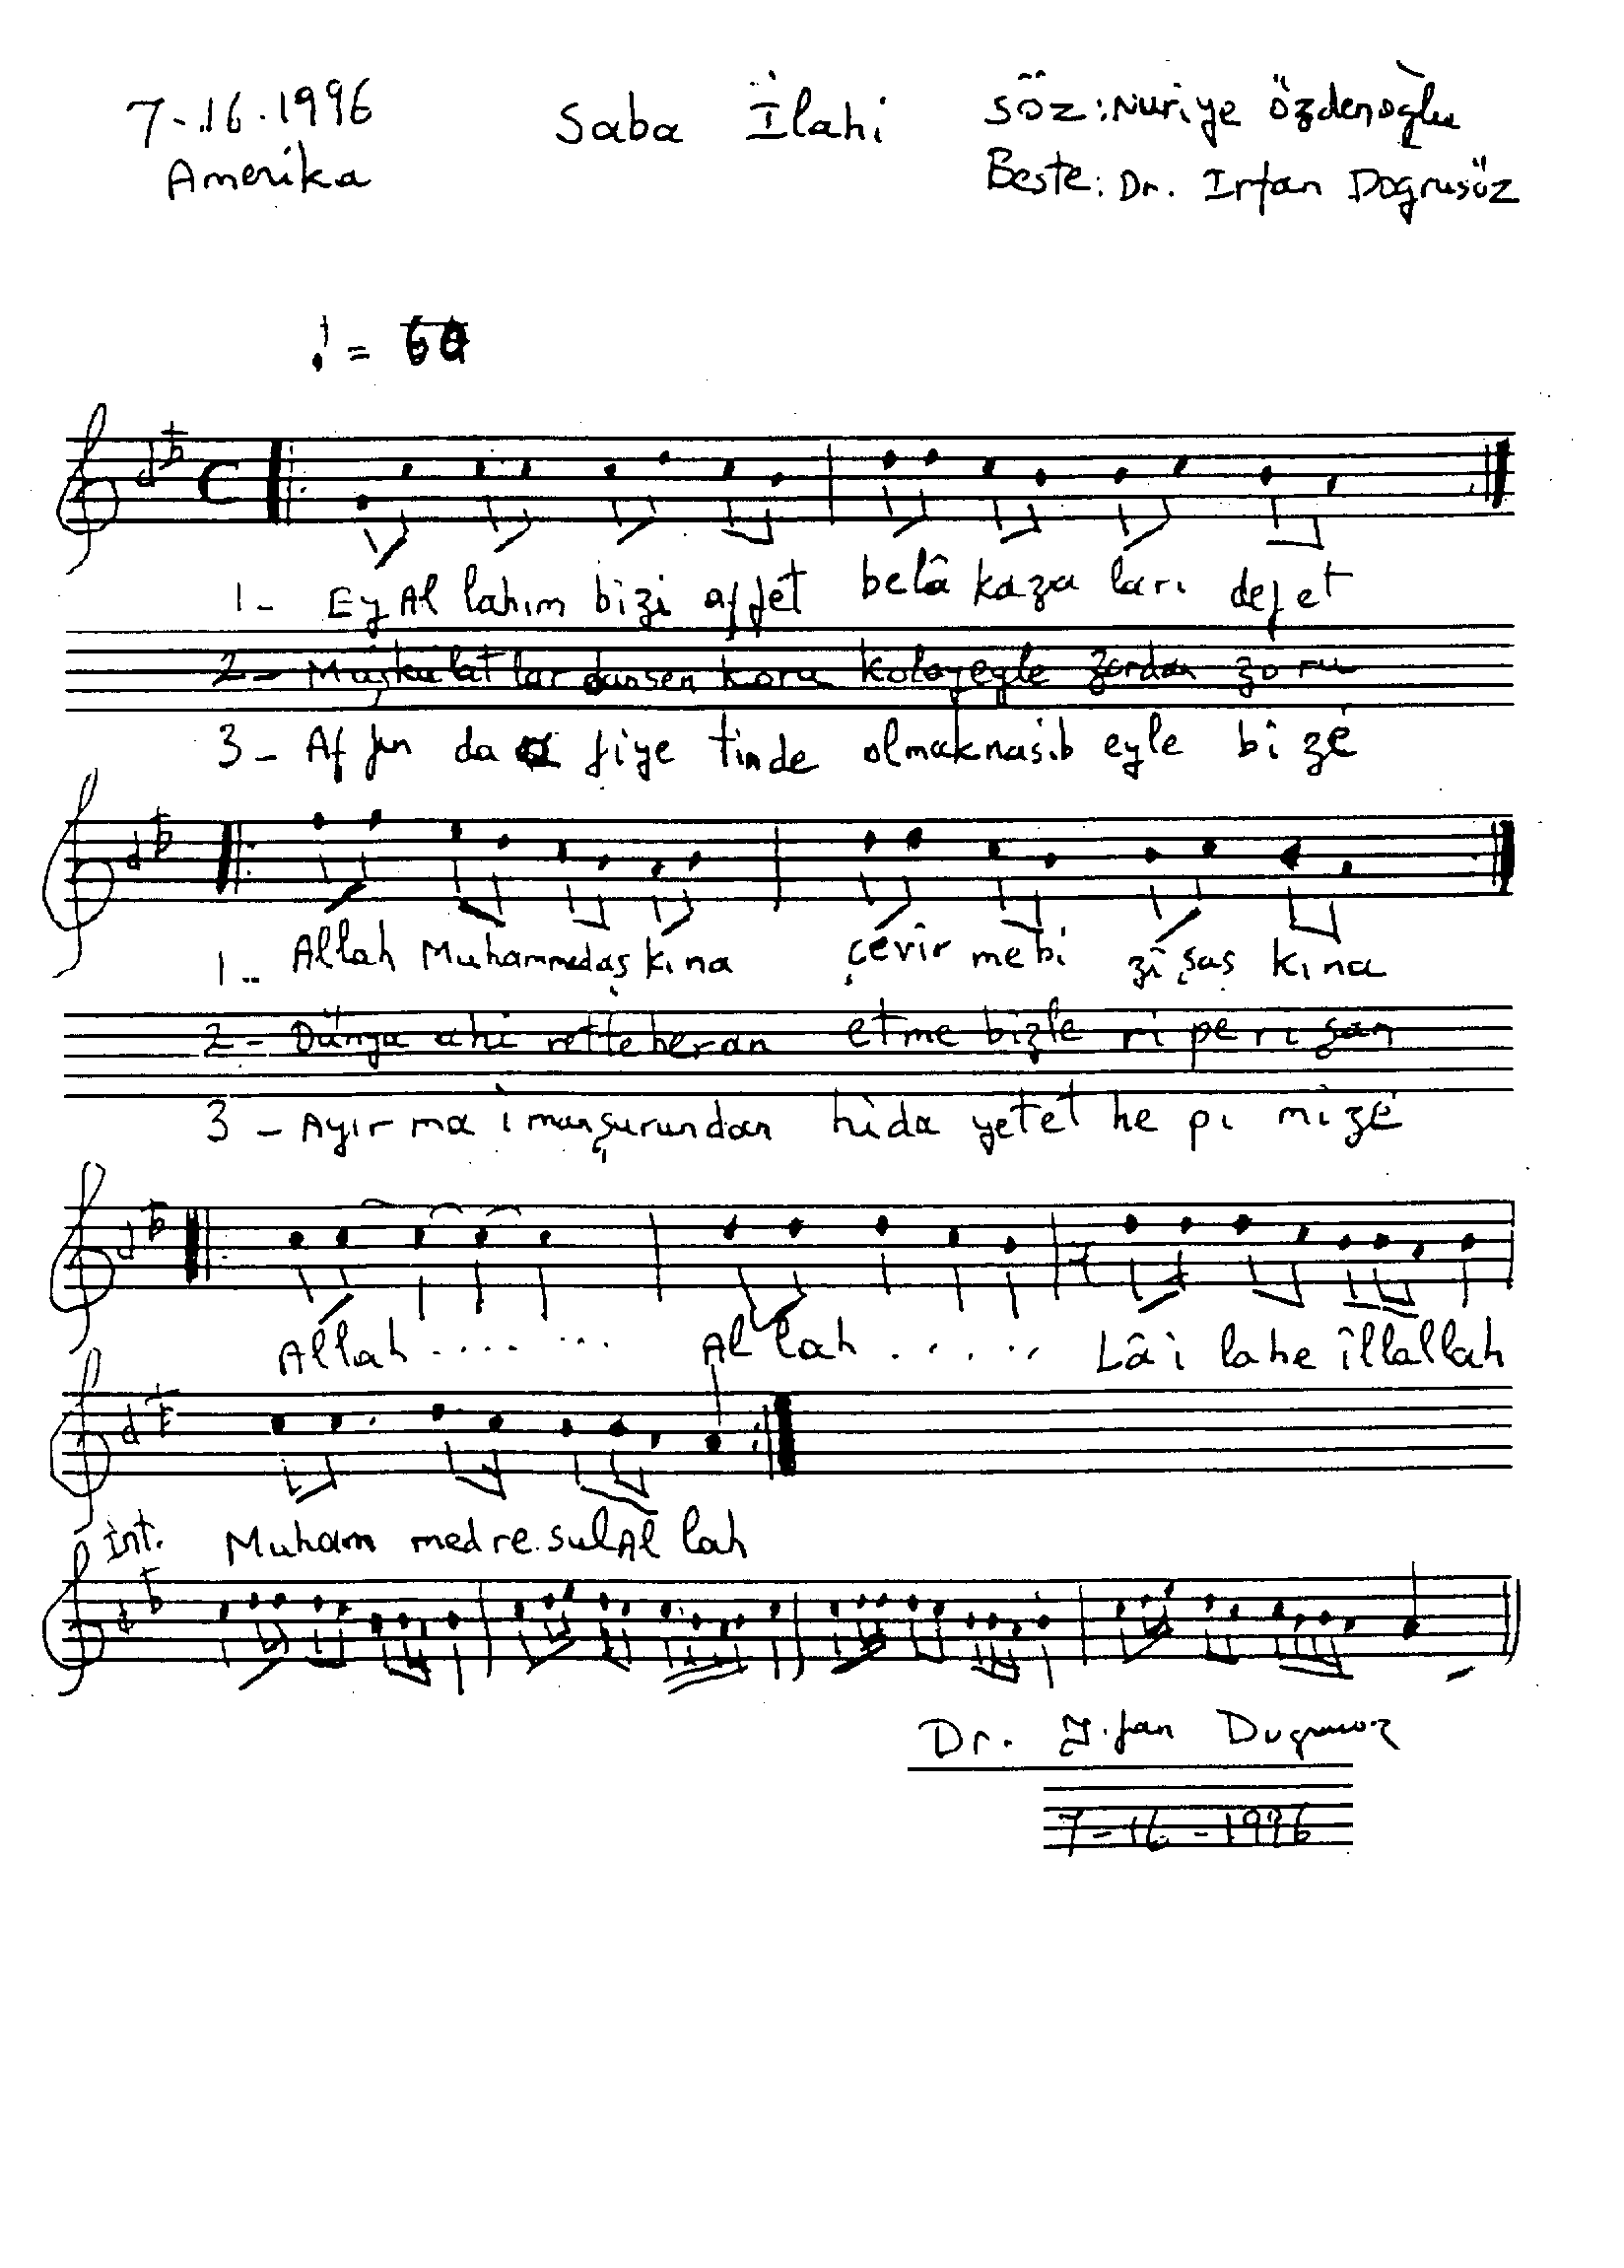 7-16-1996 Saba İlahi Söz: Nuriye Özdenoğlu
Amerika Beste: Dr. Irfan Doğrusöz
= 60
1- Ey Al lahım bizi affet belâ kaza ları defet
2- Müşkülat lar dansen koru kolayeyle zordan zoru
3- Af fın da a fiye tinde olmaknasib eyle bi ze
1- Allah Muhammedaş kına çevir mebi zi şaş kına
2- Dünya ahi retteheran etme bizle ri peri şan
3- Ayır ma imanşurundan hida yetet he pi mize
Allah ....... Al lah ...... Lâ i lahe illallah
int. Muham medre sulAl lah
Dr. Irfan
7-16-1996